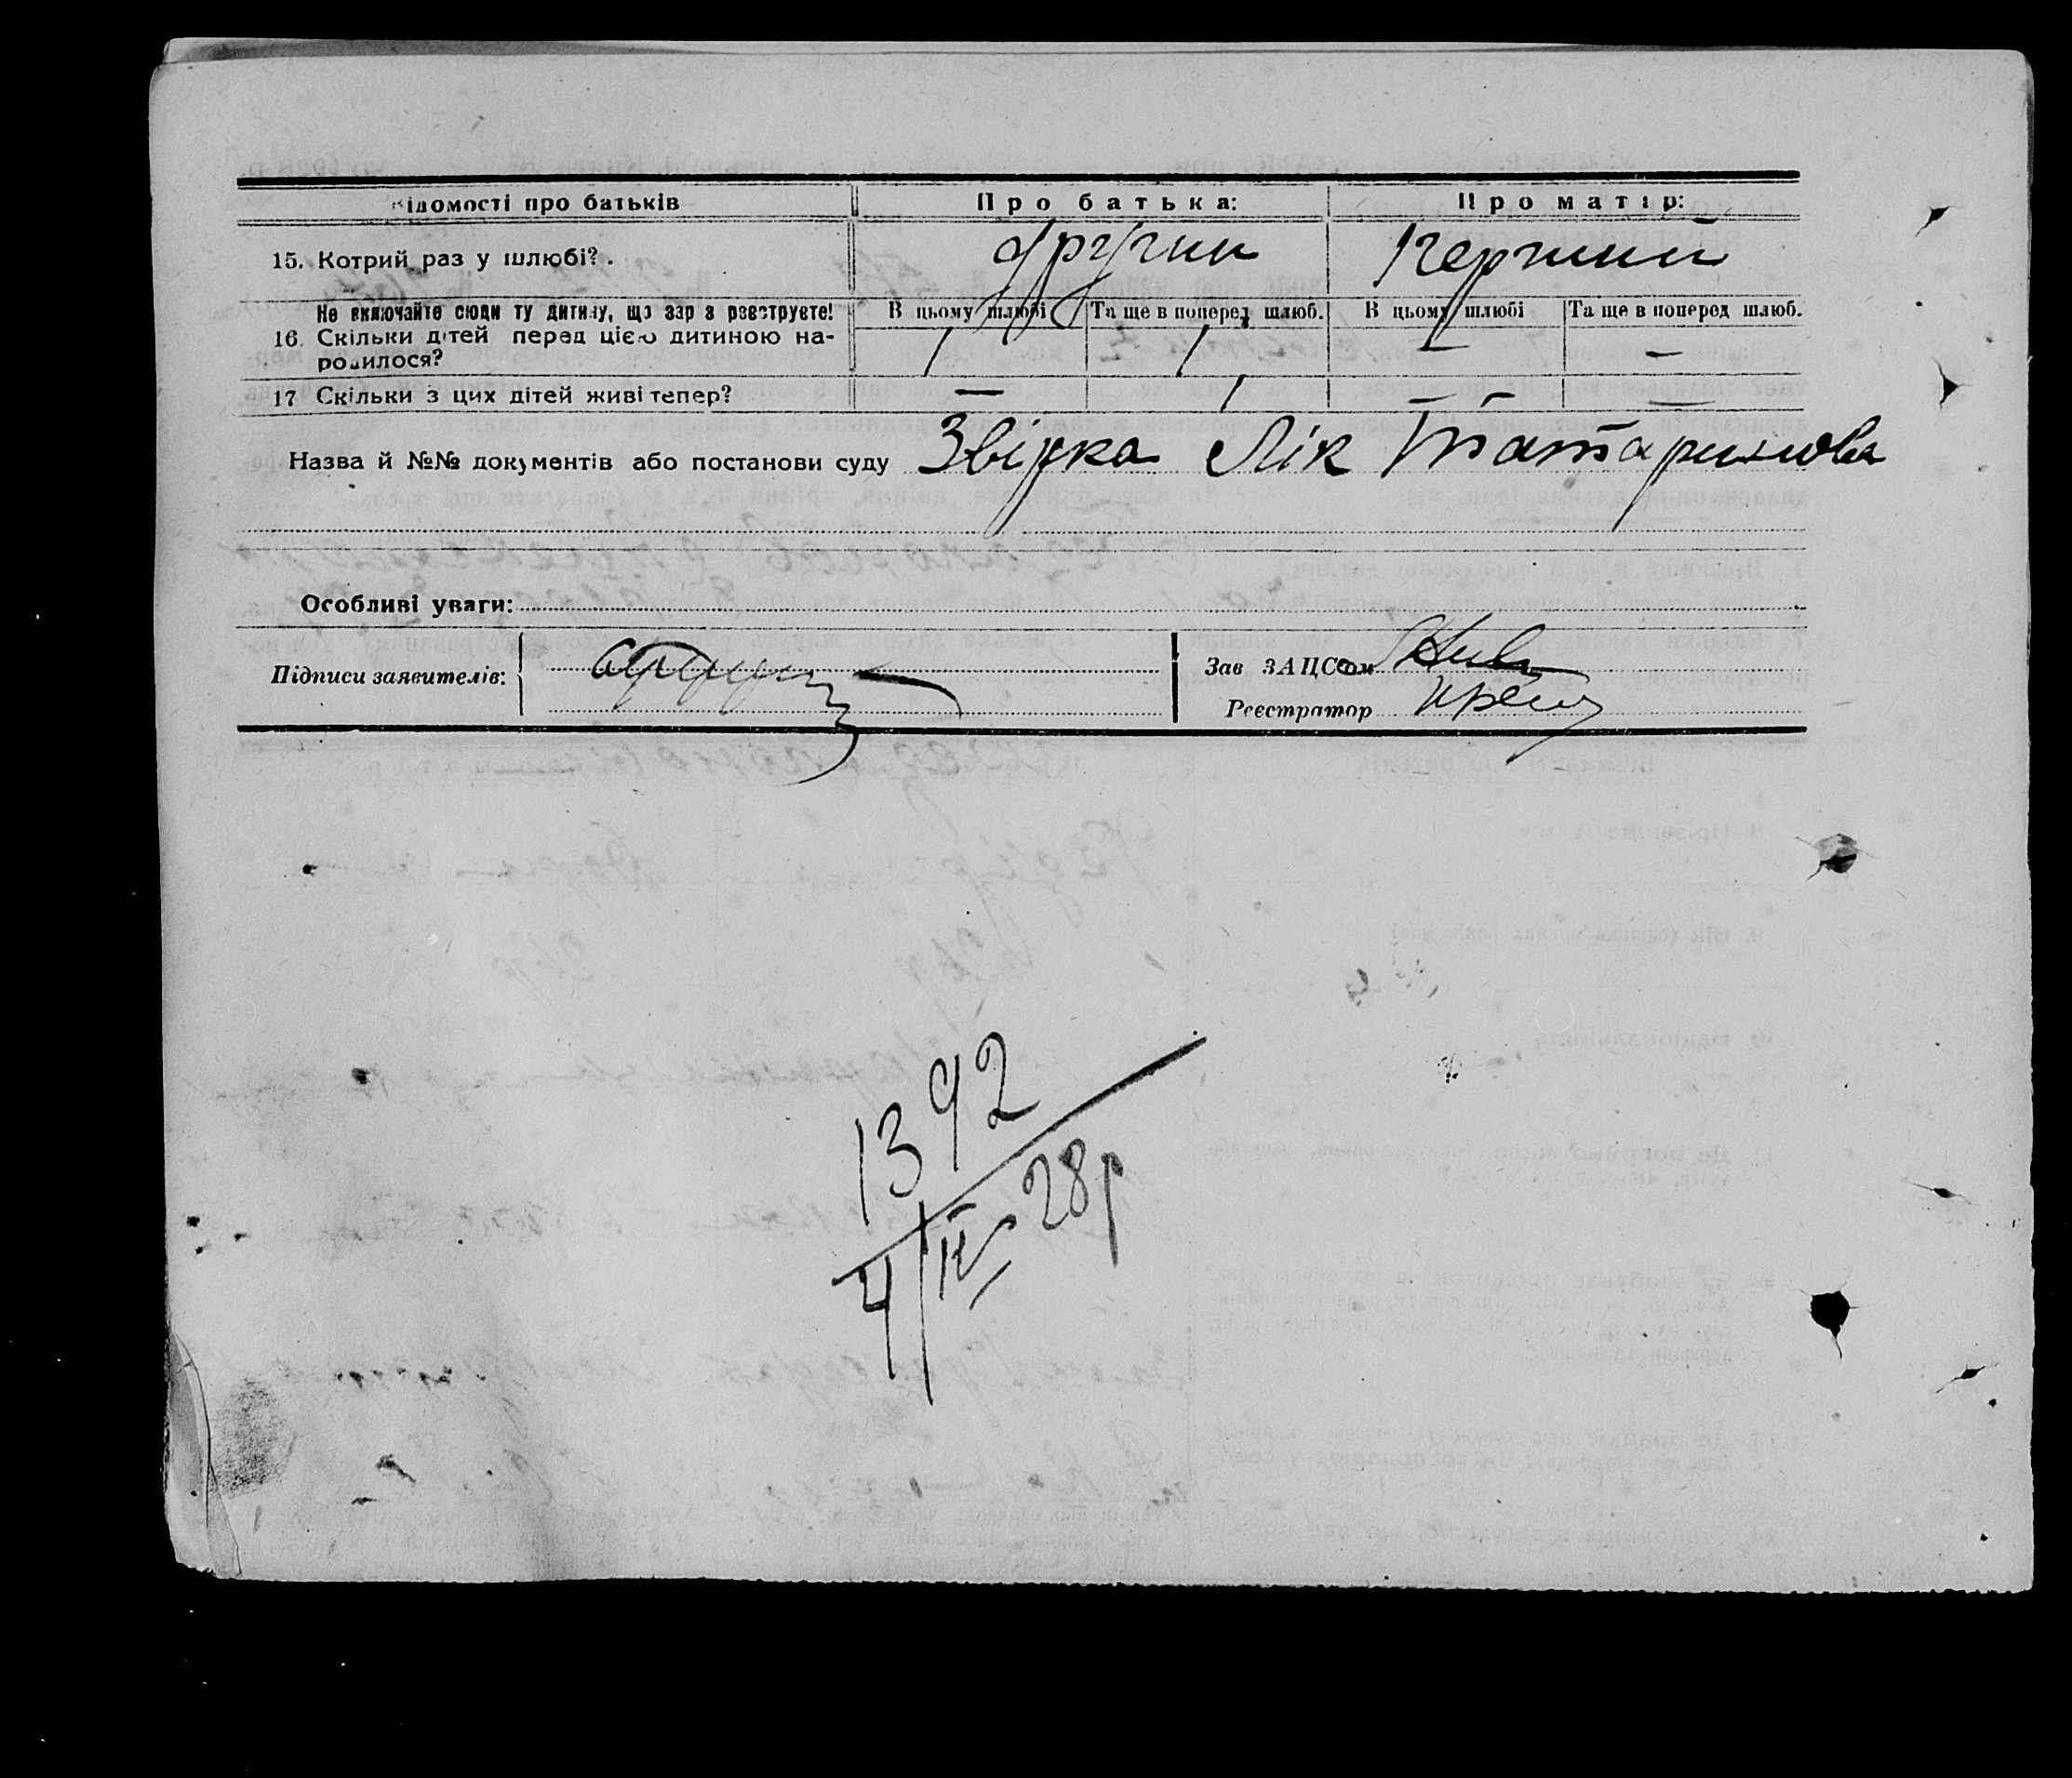 Відомості про батьків Про батька: Про матір:
15. Котрий раз у шлюбі? . другий Перший
Не включайте сюди ту дитину, що зараз реєструєте! В цьому шлюбі Та ще в поперед шлюб. В цьому шлюбі Та ще в поперед шлюб.
16. Скільки дітей перед цією дитиною на- 1 1 — —
родилося?
17 Скільки з цих дітей живі тепер? — 1 — —
Назва й №№ документів або постанови суду Звірка Лік Татаринова
Особливі уваги:
Підписи заявителів: Зав ЗАЦСом
Реєстратор
1392
4/IV 28р